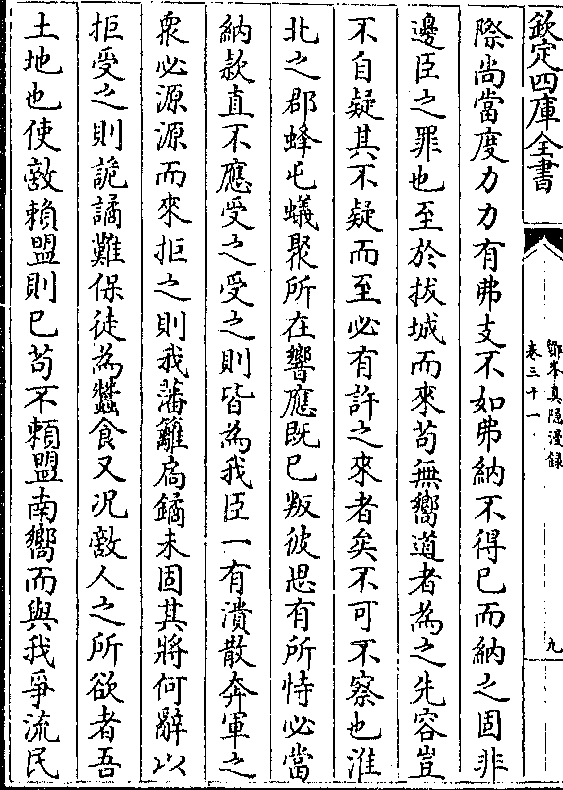 欽定四庫全書
鄮峯真隱漫録
卷三十一
九
際尚當度力力有弗支不如弗納不得已而納之固非
邊臣之罪也至於拔城而來苟無嚮道者為之先容豈
不自疑其不疑而至必有許之來者矣不可不察也淮
北之郡蜂屯蟻聚所在響應既已叛彼思有所恃必當
納款直不應受之受之則皆為我臣一有潰散奔軍之
衆必源源而來拒之則我藩籬扃鐍未固其將何辭以
拒受之則詭譎難保徒為蠶食又况敵人之所欲者吾
土地也使敵賴盟則已苟不賴盟南嚮而與我爭流民